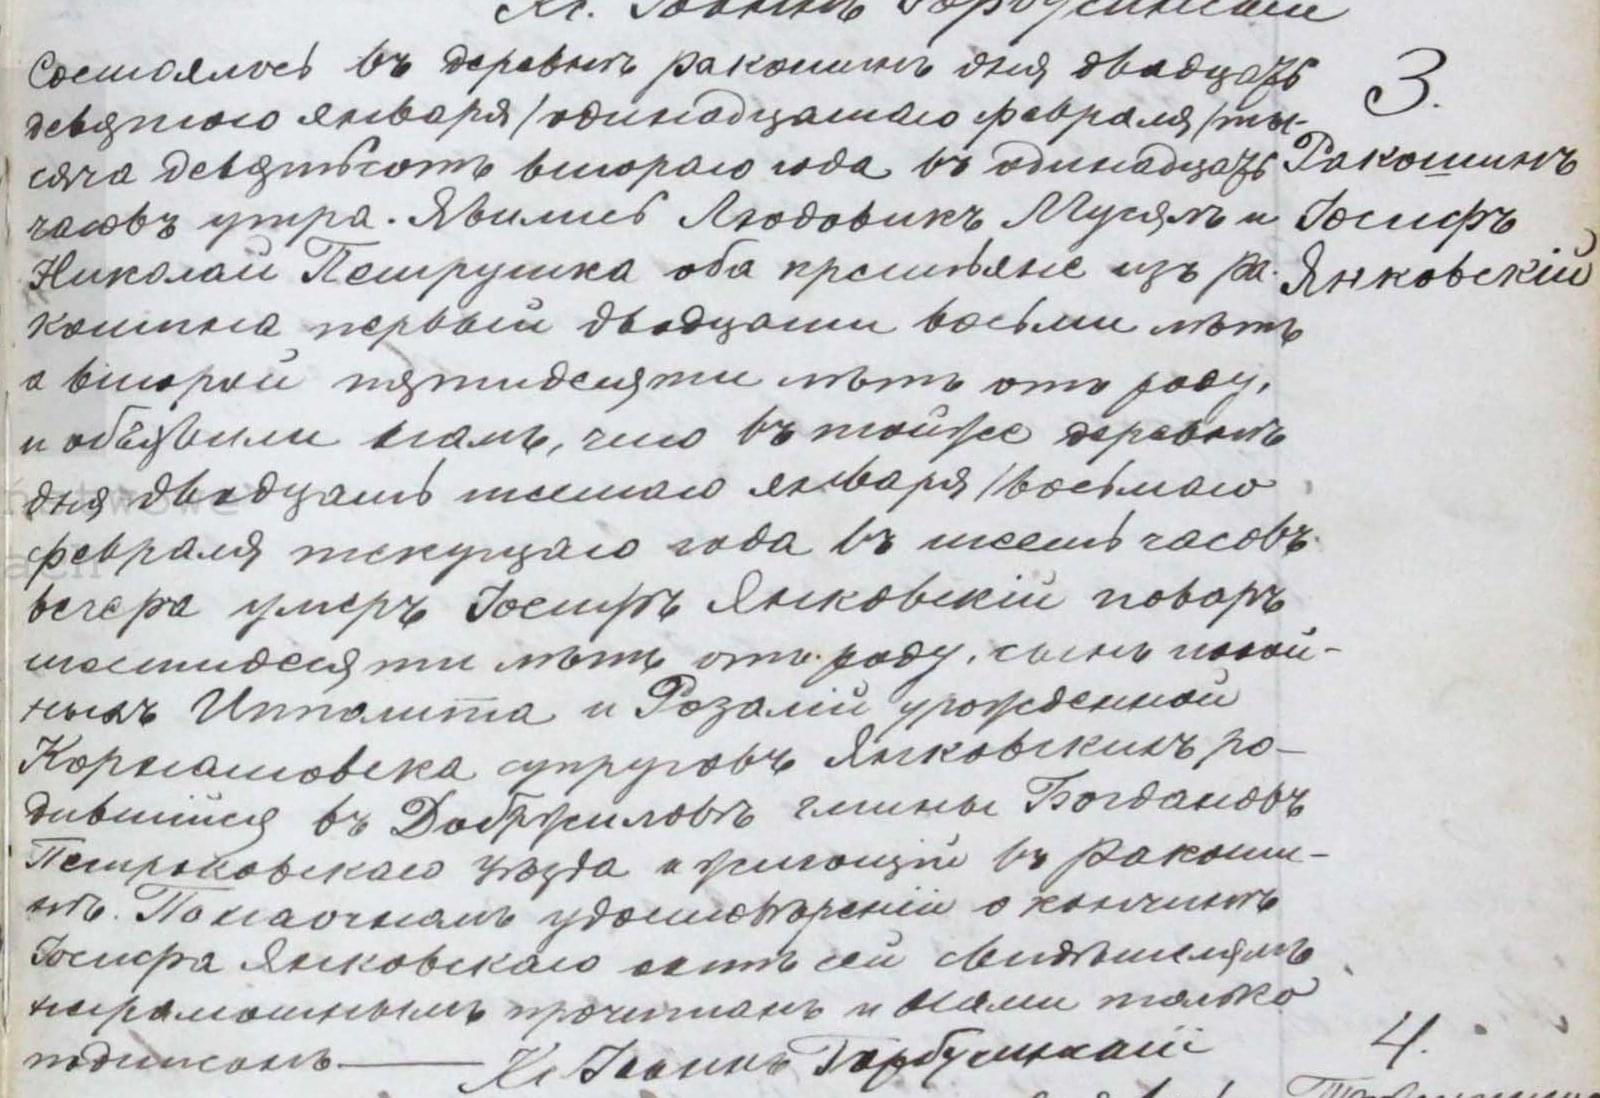 Кс. Іоаннъ
Состоялось въ деревнѣ Ракошинъ дня двадцать
девятого января /одинадцатаго февраля/ ты-
сяча девятьсотъ втораго года въ одинадцать
часовъ утра. Явились Людовикъ Мусялъ и
Николай Петрушка оба крестьяне изъ Ра-
кошина первый двадцати восьми лѣтъ
а второй пятидесяти лѣтъ отъ роду,
и объявили намъ, что въ тойже деревнѣ
дня двадцать шестаго января /восьмаго
февраля текущаго года въ шесть часовъ
вечера умеръ Іосифъ Янковскій поваръ
шестидесяти лѣтъ отъ роду, сынъ покой-
ныхъ Ипполита и Розаліи урожденной
супруговъ Янковскихъ ро-
дившійся въ гмины Богдановъ
Петроковскаго уѣзда и жиющій въ Ракоши-
нѣ. По наочномъ удостовѣреніи о кончинѣ
Іосифа Янковскаго актъ сей свидѣтелямъ
неграмотнымъ прочитанъ и нами только
подписанъ. — Кс Іоаннъ
3.
Ракошинъ
Іосифъ
Янковскій
4.